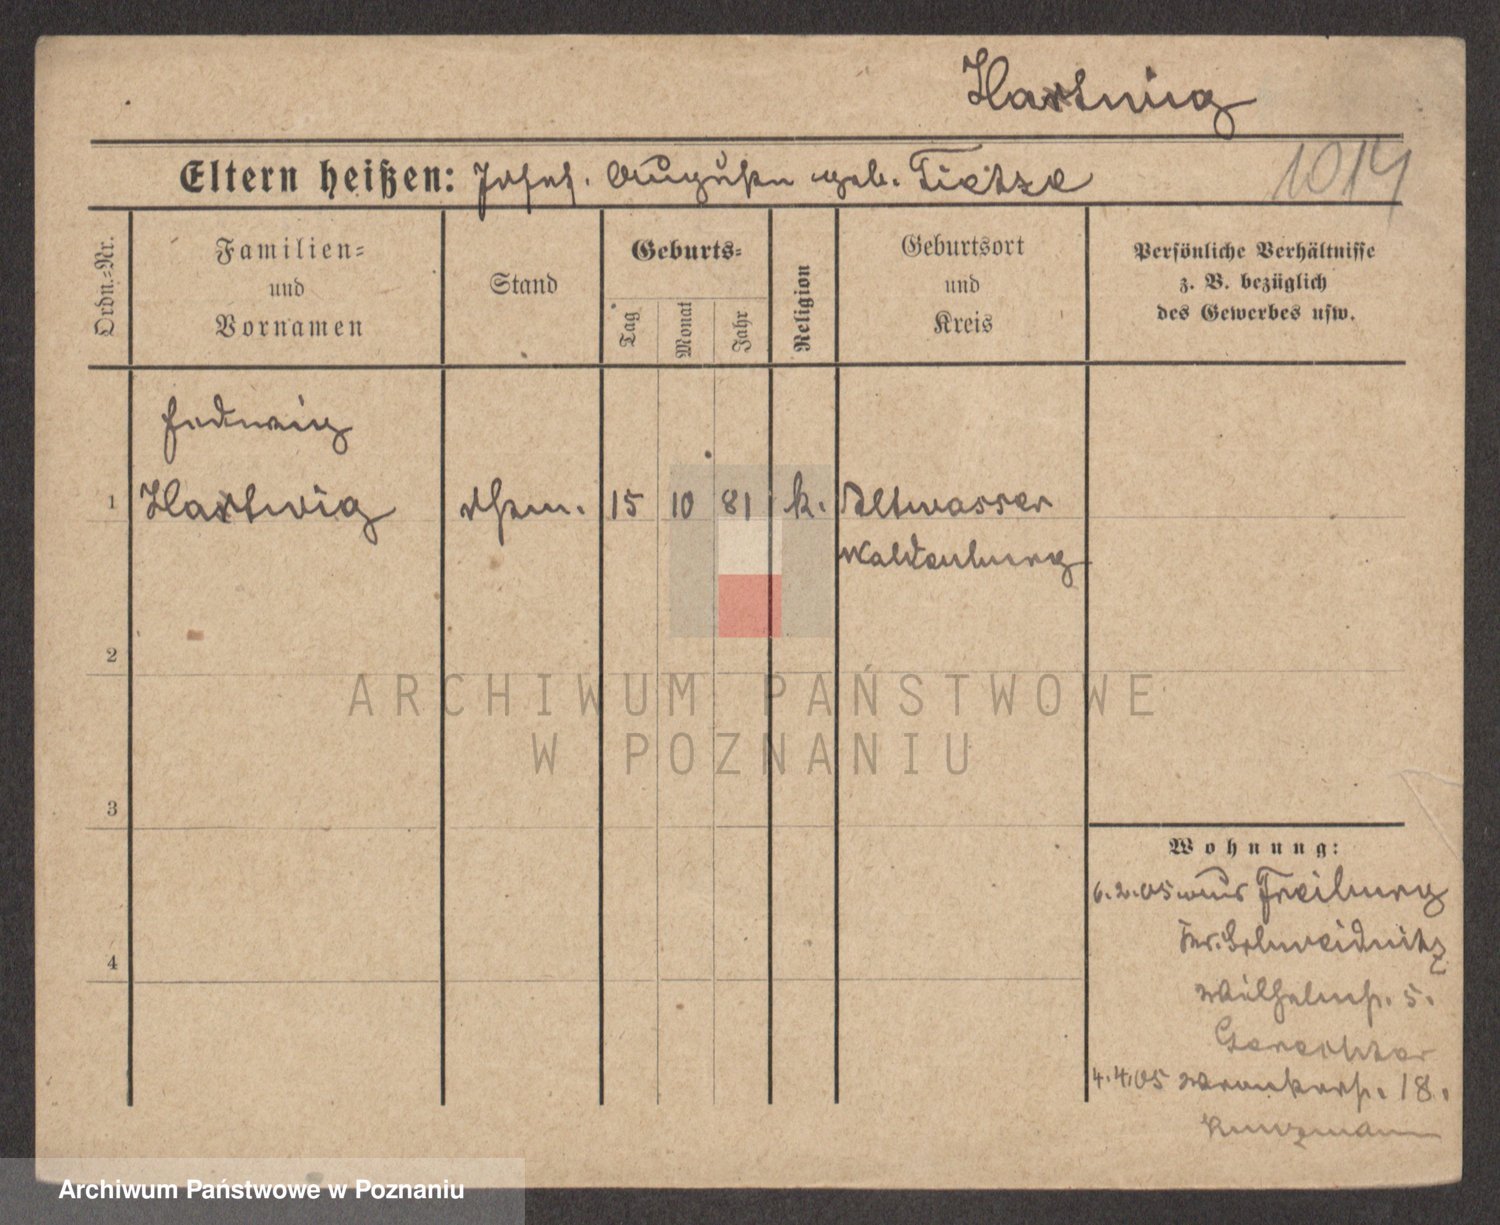 Hartwig
Eltern heißen: Josef. Auguste geb. Tietze
1014
Ordn.-Nr.
Familien-
und
Vornamen
Stand
Geburts-
Tag
Monat
Jahr
Religion
Geburtsort
und
Kreis
Persönliche Verhältnisse
z. B. bezüglich
des Gewerbes usw.
Hedwig
1 Hartwig 15 10 81 k. Altwasser
Waldenburg
2
3
4
Wohnung:
6.2.05 aus Freiburg
Kr. Schweidnitz
Wilhelmstr. 5.
4.4.05 Wronkerstr. 18.
ARCHIWUM PAŃSTWOWE
W POZNANIU
Archiwum Państwowe w Poznaniu